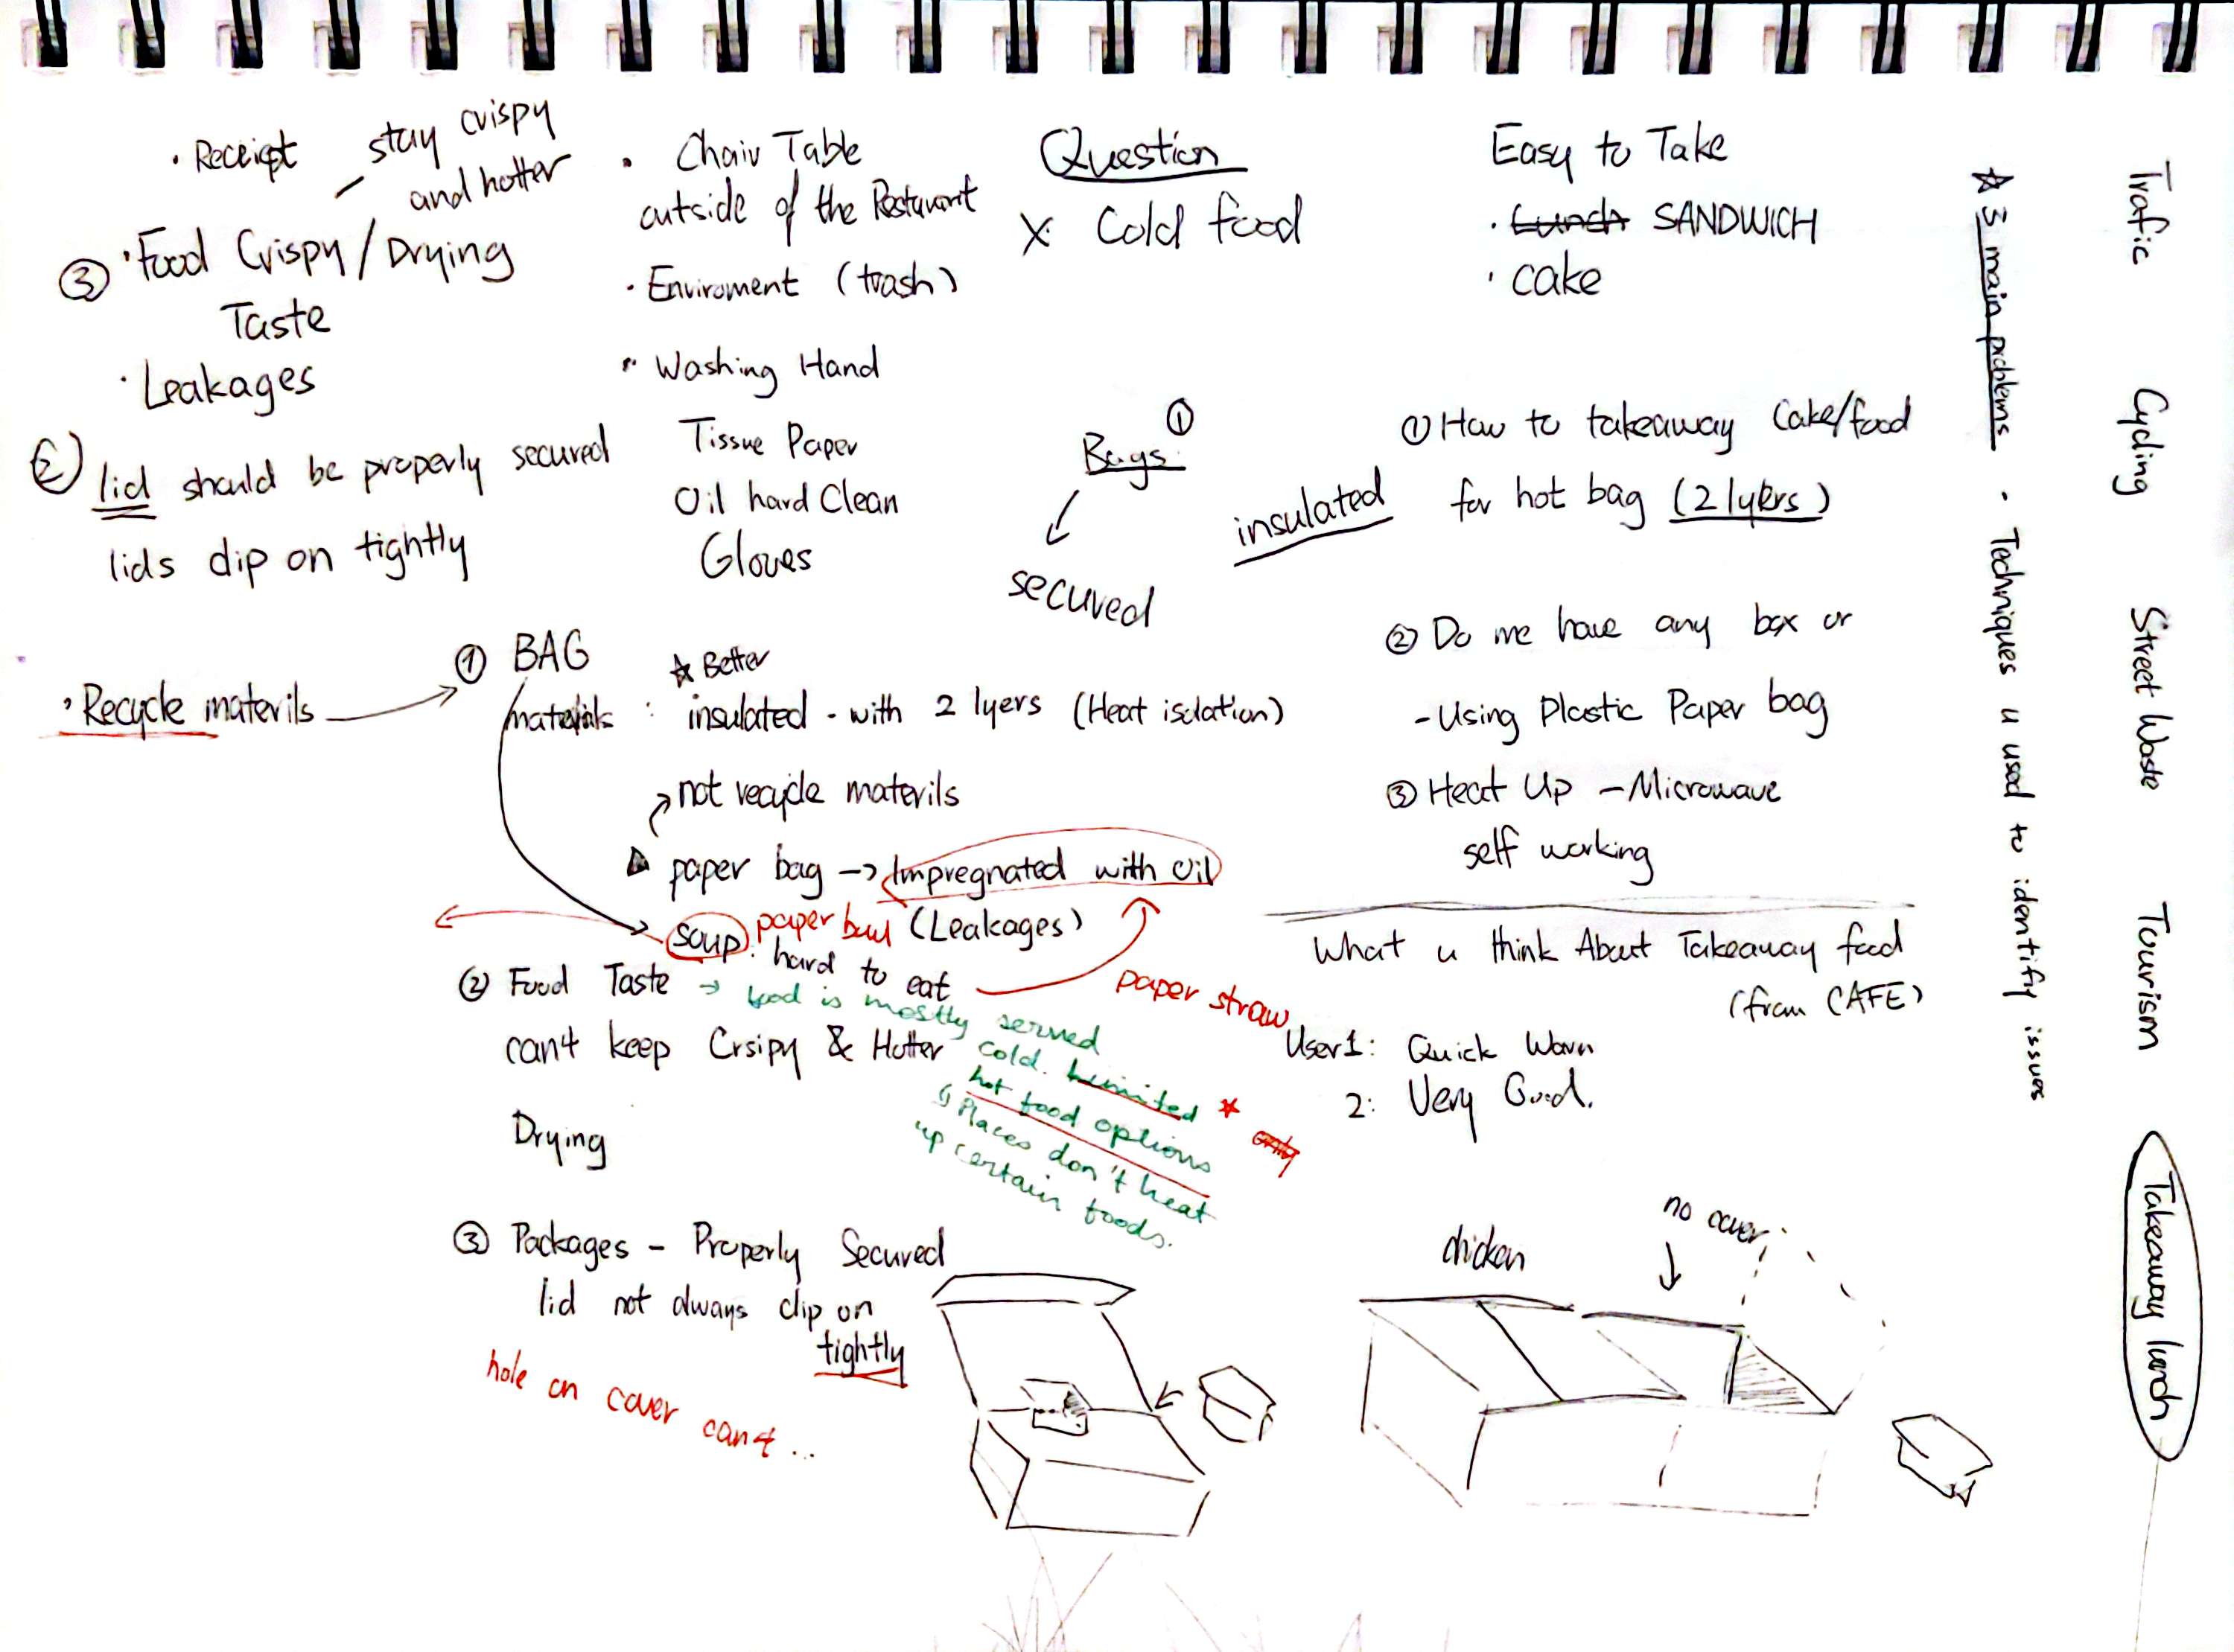 · Receipt
stay crispy
and hotter
③ · Food Crispy / Drying
Taste
· Leakages
② lid should be properly secured
lids clip on tightly
· Chair Table
outside of the Restuarant
· Enviroment (trash)
· Washing Hand
Tissue Paper
Oil hard Clean
Gloves
Question
X Cold food
Bags ①
secured
Easy to Take
· Lunch SANDWICH
· cake
① How to takeaway Cake/food
insulated for hot bag (2 lyers)
② Do me have any box or
- Using Plastic Paper bag
③ Heat Up - Microwave
self working
What u think About Takeaway food
(from CAFE)
User1: Quick Warn
2: Very Good.
· Recycle materils
① BAG
☆ Better
materials : insulated - with 2 lyers (Heat isolation)
not recycle materils
paper bag → Impregnated with Oil
soup. paper (Leakages)
hard to eat
paper straw
② Food Taste → food is mostly served
cold. Limited
hot food options
Places don't heat
up certain foods.
can4 keep Crsipy & Hotter
Drying
③ Packages - Properly Secured
lid not always clip on
tightly
hole on cover can4 ...
chicken
no cover
☆ 3 main problems
· Techniques u used to identify issues
Trafic
Cycling
Street Waste
Tourism
Takeaway lunch